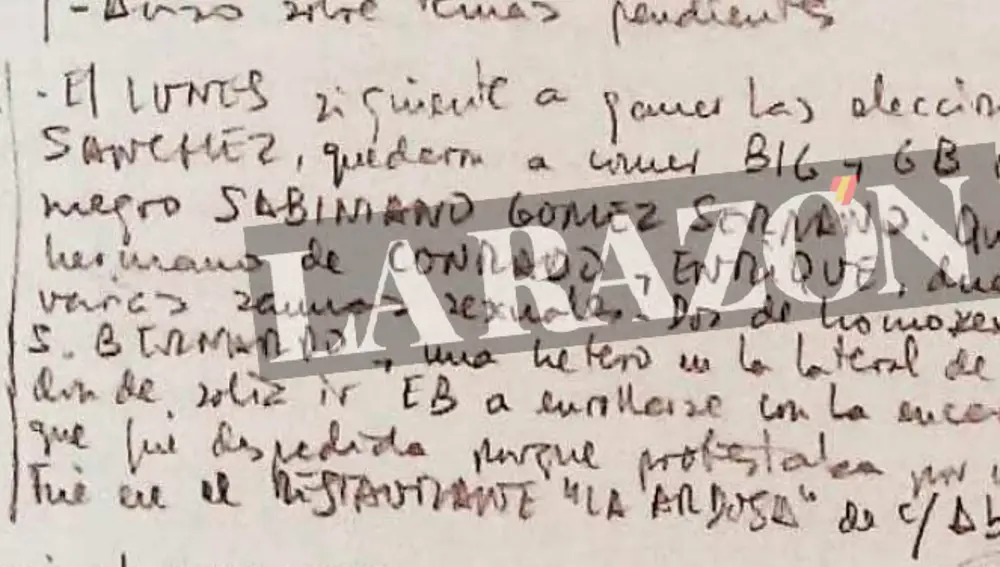 - Aviso sobre temas pendientes
· El LUNES siguiente a ganar las eleccion
SANCHEZ, quedaron a comer BIG y GB
negro SABINIANO GOMEZ SERRANO. Qu
hermano de CONRADO y ENRIQUE, due
varias saunas sexuales. Dos de homosex
S. BERNARDO y una hetero en la lateral de
donde solía ir EB a enrollarse con la enca
que fué despedida porque protestaba por
Fué en el RESTAURANTE "LA ARDOSA" de c/
LA RAZÓN